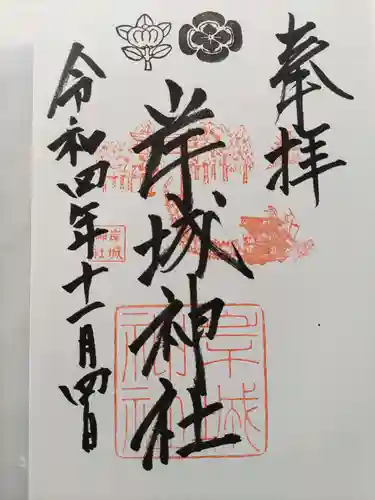 奉拝
岸城神社
令和四年十一月四日
岸城
神社
岸城
神社